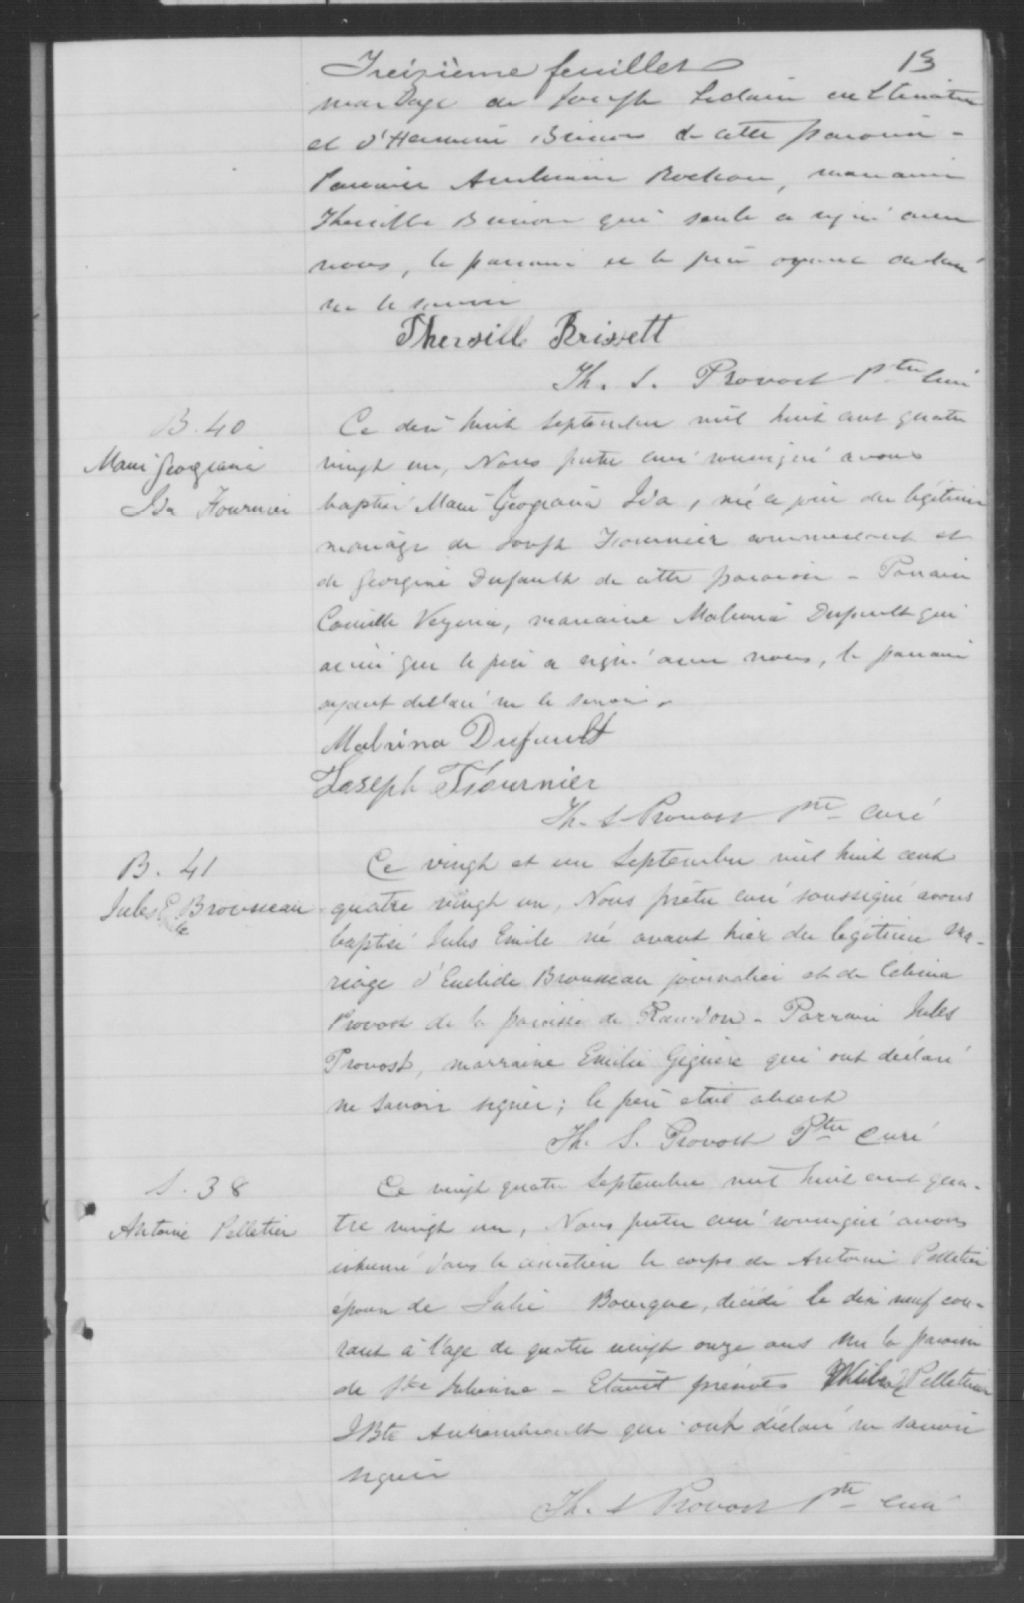 Treizième feuillet 13
mariage de Joseph Leclaire cultivateur
et d'Hermine de cette paroisse -
Parrain Rocheau, marraine
Thersille qui seule a signé avec
nous, le parrain et le père ayant déclaré
ne le savoir
Thersille Brissett
Th. S. Provost Ptre curé
B. 40
Marie Georgiana
Ida Fournier
Ce dix huit Septembre mil huit cent quatre
vingt un, Nous prêtre curé soussigné avons
baptisé Marie Georgiana Ida, née ce jour du légitime
mariage de Joseph Fournier commercant et
de Georgine Dufault de cette paroisse - Parrain
Camille Vezina, marraine Malvina Dufault qui
ainsi que le père a signé avec nous, le parrain
ayant déclaré ne le savoir.
Malvina Dufault
Joseph Fournier
Th. S Provost ptre curé
B. 41
Jules E. Brousseau
Ce vingt et un Septembre mil huit cent
quatre vingt un, Nous prêtre curé soussigné avons
baptisé Jules Emile né avant hier du légitime ma-
riage d'Euclide Brousseau journalier et de Célina
Provost de la paroisse de Rawdon - Parrain Jules
Provost, marraine Emilie Giguère qui ont déclaré
ne savoir signer; le père était absent
Th. S. Provost Ptre curé
S. 38
Antoine Pelletier
Ce vingt quatre Septembre mil huit cent qua-
tre vingt un, Nous prêtre curé soussigné avons
inhumé dans le cimetière le corps de Antoine Pelletier
époux de Julie Bourque, décédé le dix neuf cou-
rant à l'age de quatre vingt onze ans sur la paroisse
de Ste Julienne - Etaient présents Pelletier
JBte Archambault qui ont déclaré ne savoir
signer
Th. S Provost Ptre curé